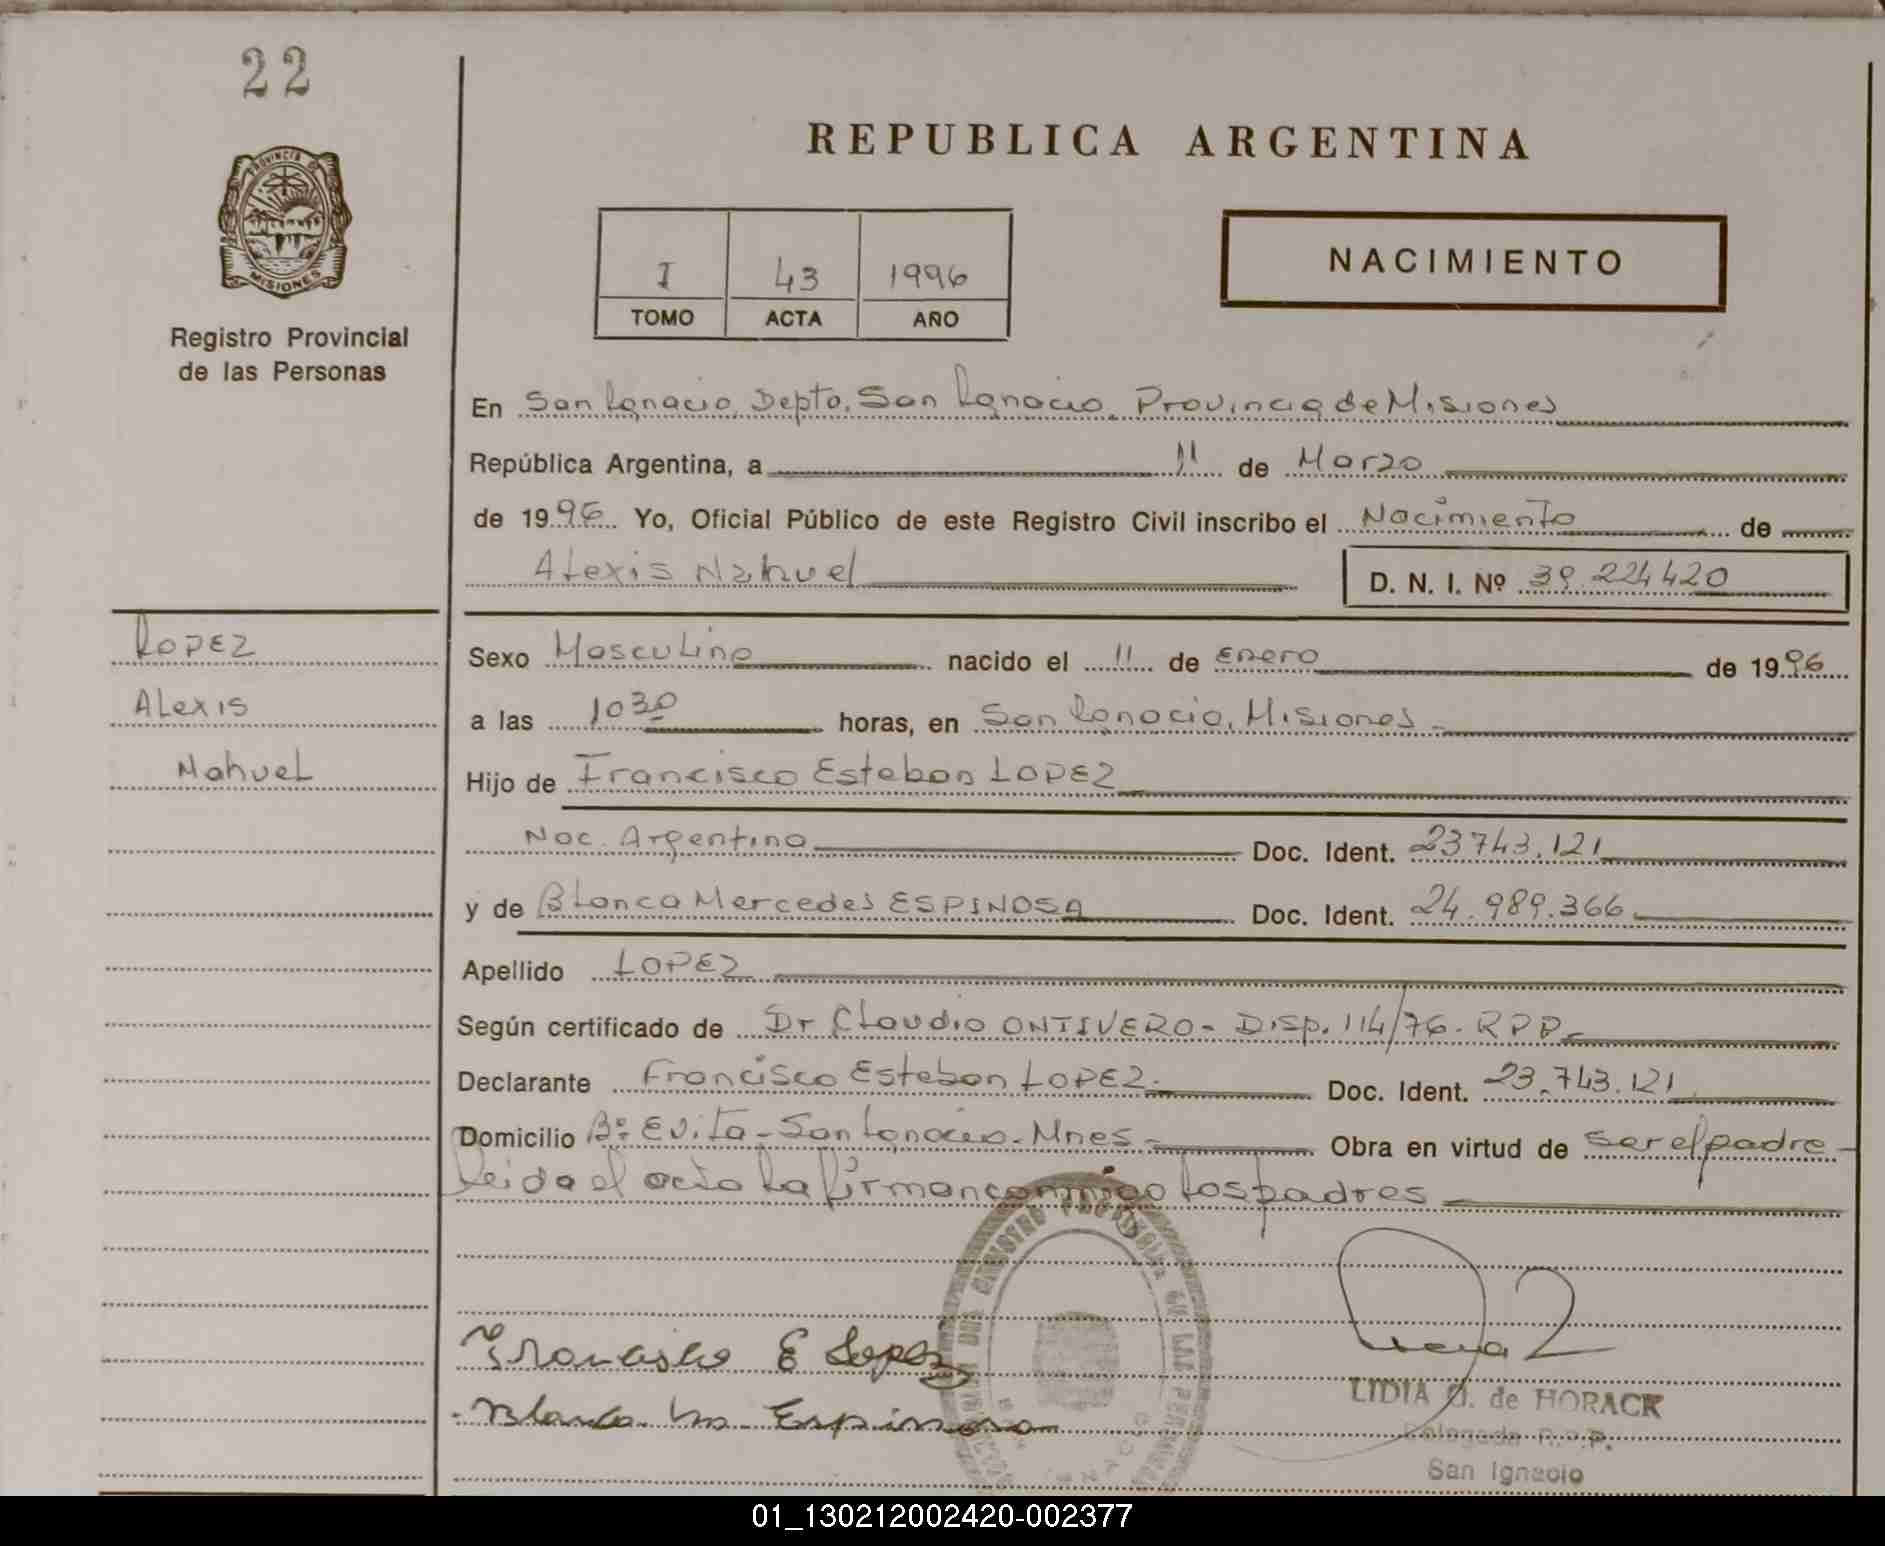 22
PROVINCIA DE
MISIONES
Registro Provincial
de las Personas
REPUBLICA ARGENTINA
I 43 1996
TOMO ACTA AÑO
NACIMIENTO
En San Ignacio, Depto. San Ignacio. Provincia de Misiones
República Argentina, a 11 de Marzo
de 1996 Yo, Oficial Público de este Registro Civil inscribo el Nacimiento de
Alexis Nahuel D. N. I. Nº 39.224420
LOPEZ
Alexis
Nahuel
Sexo Masculino nacido el 11 de Enero de 1996
a las 1030 horas, en San Ignacio, Misiones -
Hijo de Francisco Esteban LOPEZ
Nac. Argentina Doc. Ident. 23743.121
y de Blanca Mercedes ESPINOSA Doc. Ident. 24.989.366
Apellido LOPEZ
Según certificado de Dr Claudio ONTIVERO - Disp. 114/76 - RPP -
Declarante Francisco Esteban LOPEZ. Doc. Ident. 23.743.121
Domicilio Bº Evita - San Ignacio - Mnes - Obra en virtud de ser el padre -
Leida el acta la firman conmigo los padres
Francisco E Lopez
Blanca M. Espinosa
LIDIA de HORACK
Delegada R. P.
San Ignacio
01_130212002420-002377